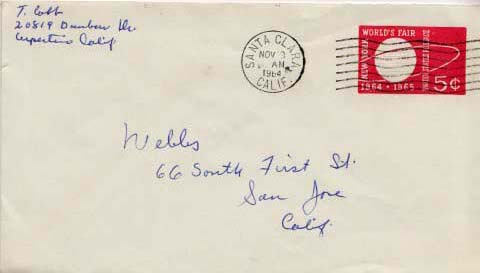 T. Cobb
20819 Dunbar Dr.
Cupertino Calif
SANTA CLARA
NOV 3
AM
1964
CALIF.
WORLD'S FAIR
NEW YORK
UNITED STATES POSTAGE
1964-1965
5¢
Webbs
66 South First St.
San Jose
Calif.